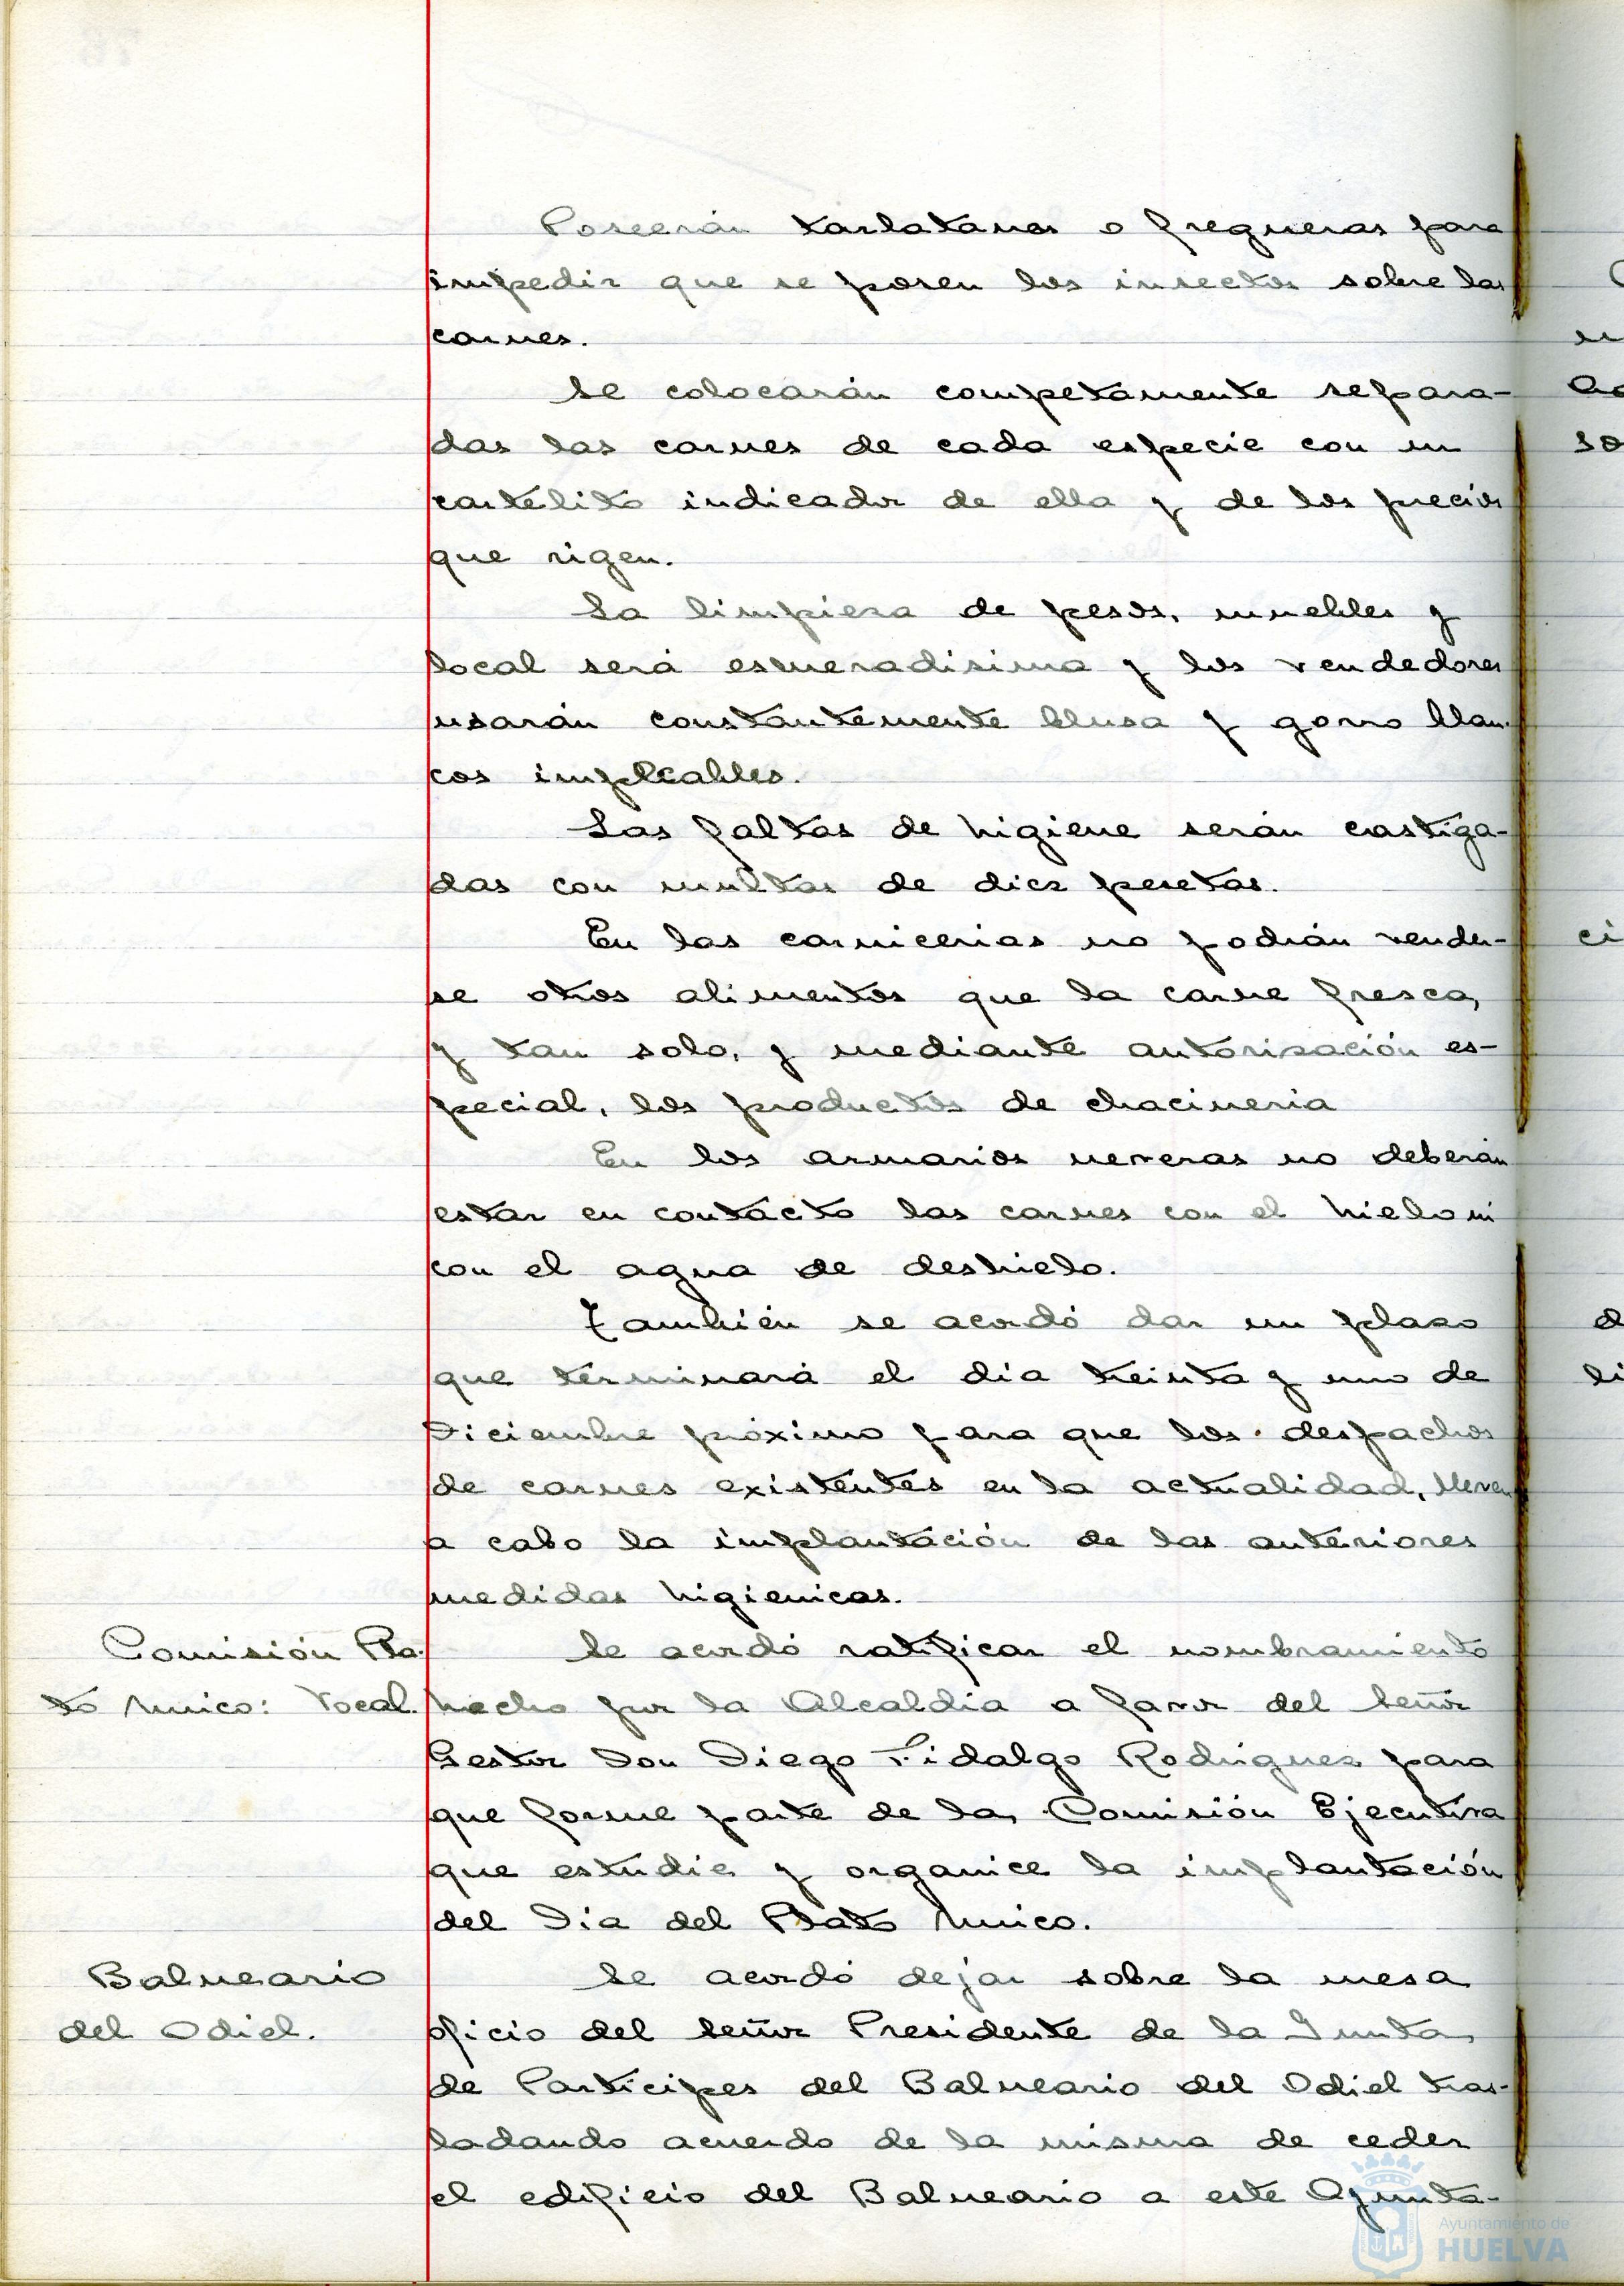 Poseerán tarlatanas o fregueras para
impedir que se posen los insectos sobre las
carnes.
Se colocarán competamente separa-
das las carnes de cada especie con un
cartelito indicador de ella y de los precios
que rigen.
La limpieza de pesos, muebles y
local será esmeradisima y los vendedores
usarán constantemente blusa y gorro blan-
cos impleables.
Las faltas de higiene serán castiga-
das con multas de diez pesetas.
En las carnicerias no podrán vender-
se otros alimentos que la carne fresca,
y tan solo, y mediante autorización es-
pecial, los productos de chacineria
En los armarios neveras no deberán
estar en contacto las carnes con el hielo ni
con el agua de deshielo.
También se acordó dar un plazo
que terminará el dia treinta y uno de
Diciembre próximo para que los despachos
de carnes existentes en la actualidad, lleven
a cabo la implantación de las anteriores
medidas higienicas.
Comisión Pla-
to Unico: Vocal.
Se acordó ratificar el nombramiento
hecho por la Alcaldia a favor del Señor
Gestor Don Diego Fidalgo Rodriguez para
que forme parte de la Comisión Ejecutiva
que estudie y organice la implantación
del Dia del Plato Unico.
Balneario
del Odiel.
Se acordó dejar sobre la mesa
oficio del Señor Presidente de la Junta
de Participes del Balneario del Odiel tras-
ladando acuerdo de la misma de ceder
el edificio del Balneario a este Ayunta-
Ayuntamiento de
HUELVA